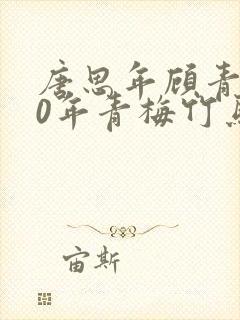 唐思年顾青
0年青梅竹马
宙斯